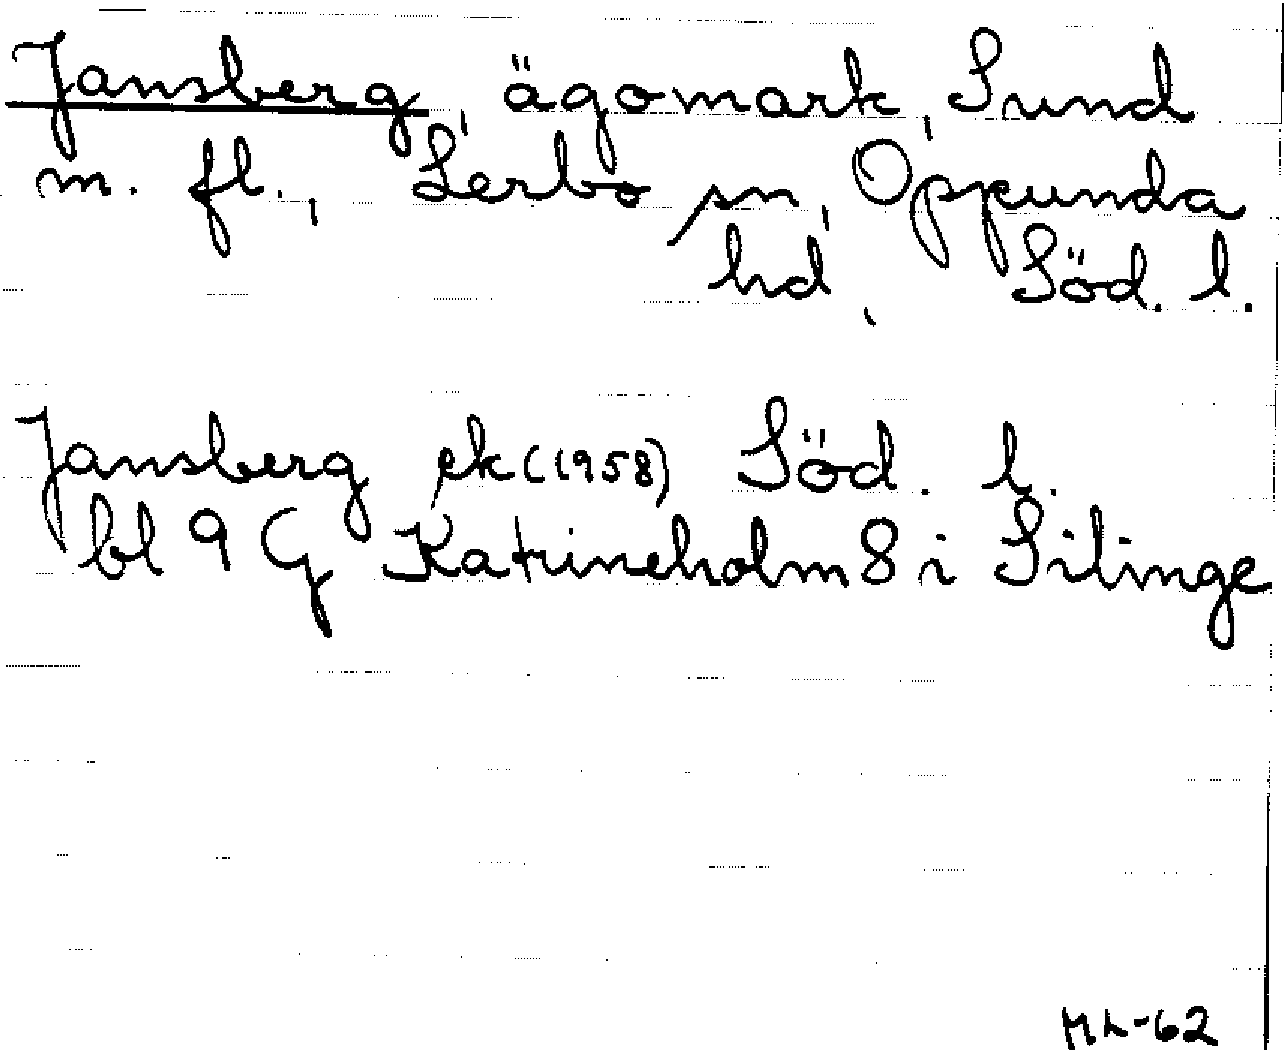 Jansberg, ägomark, Sund
m. fl., Lerbo sn, Oppunda
hd, Söd. l.
Jansberg ek (1958) Söd. l.
bl 9 G Katrineholm 8 i Silinge
ML-62